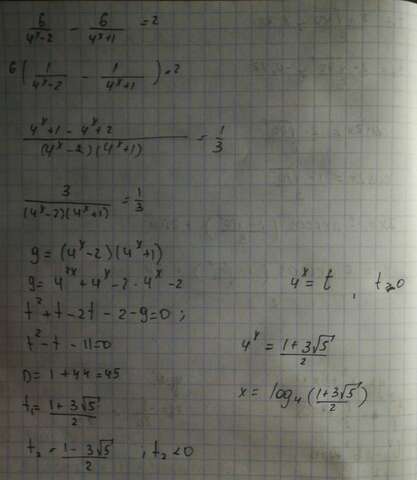 6/(4^x-2) - 6/(4^x+1) = 2
6(1/(4^x-2) - 1/(4^x+1)) = 2
(4^x+1-4^x+2)/((4^x-2)(4^x+1)) = 1/3
3/((4^x-2)(4^x+1)) = 1/3
9 = (4^x-2)(4^x+1)
9 = 4^2x + 4^x - 2·4^x - 2
4^x = t, t>0
t^2+t-2t-2-9=0;
t^2-t-11=0
4^x = (1+3√5)/2
D = 1+44=45
x = log_4((1+3√5)/2)
t_1 = (1+3√5)/2
t_2 = (1-3√5)/2, t_2<0